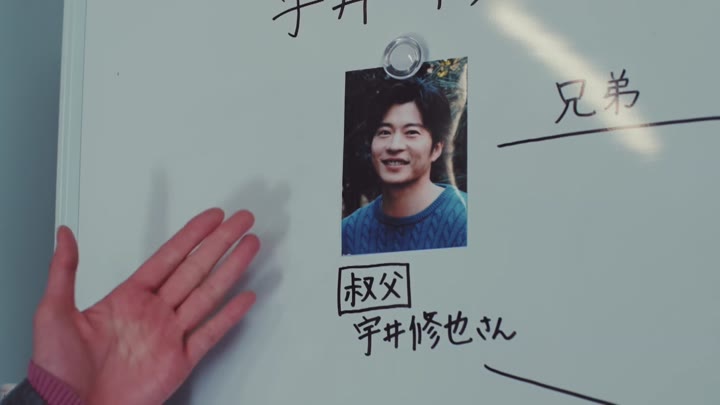 宇井
兄弟
叔父
宇井修也さん